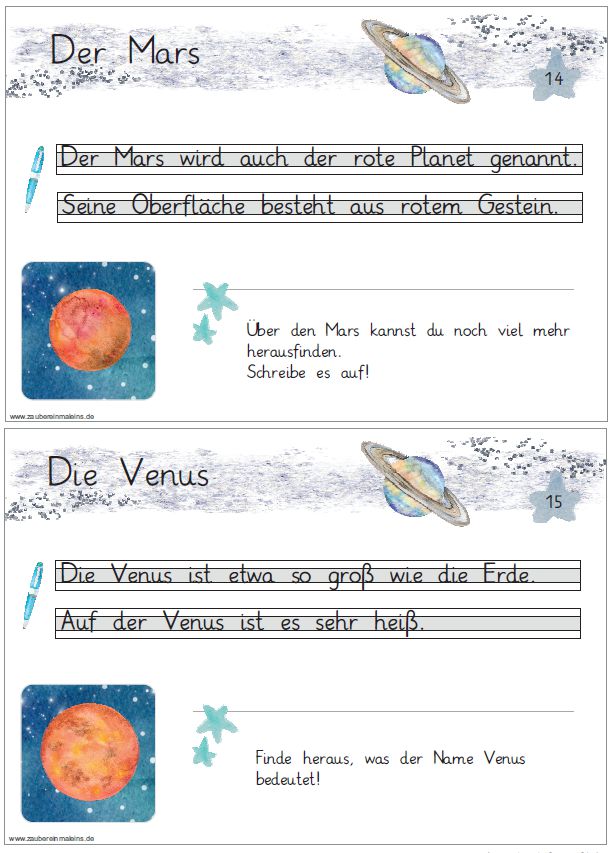 Der Mars
14
Der Mars wird auch der rote Planet genannt.
Seine Oberfläche besteht aus rotem Gestein.
Über den Mars kannst du noch viel mehr
herausfinden.
Schreibe es auf!
www.zaubereinmaleins.de
Die Venus
15
Die Venus ist etwa so groß wie die Erde.
Auf der Venus ist es sehr heiß.
Finde heraus, was der Name Venus
bedeutet!
www.zaubereinmaleins.de